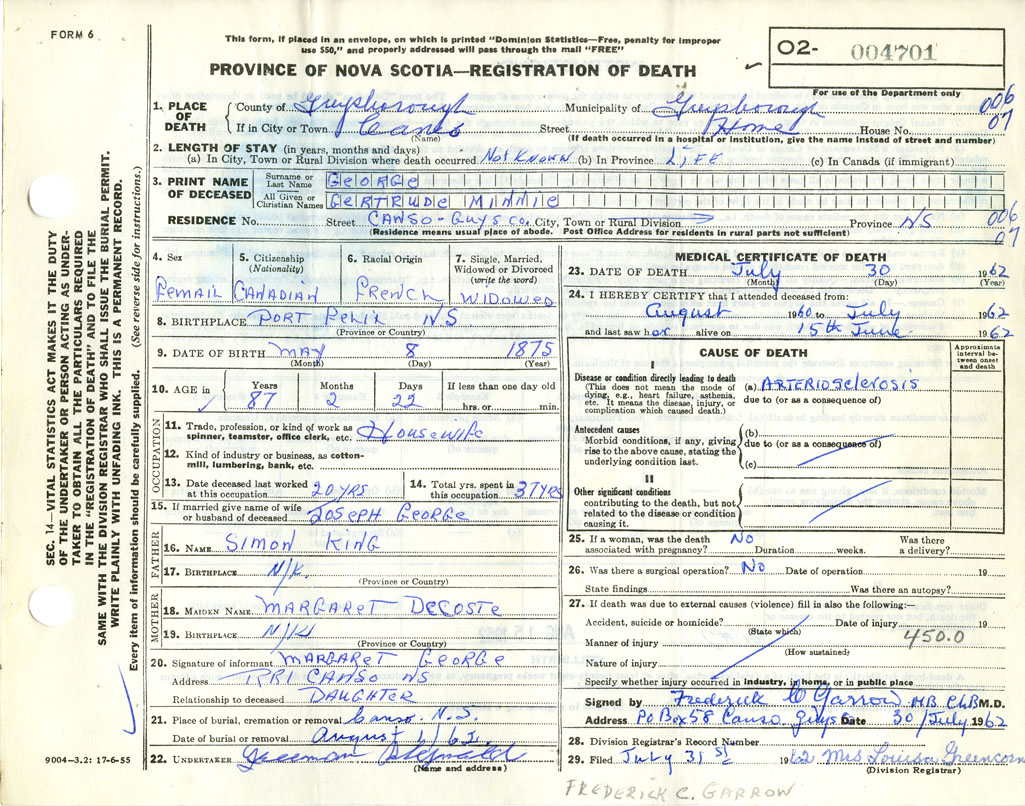 FORM 6
This form, if placed in an envelope, on which is printed "Dominion Statistics—Free, penalty for improper
use $50," and properly addressed will pass through the mail "FREE"
PROVINCE OF NOVA SCOTIA—REGISTRATION OF DEATH
O2- 004701
For use of the Department only
006
07
1. PLACE OF DEATH
County of Guysborough Municipality of Guysborough
If in City or Town Canso Street Home House No.
(Name) (If death occurred in a hospital or institution, give the name instead of street and number)
2. LENGTH OF STAY (in years, months and days)
(a) In City, Town or Rural Division where death occurred Not Known (b) In Province LiFE (c) In Canada (if immigrant)
3. PRINT NAME OF DECEASED
Surname or Last Name GEORGE
All Given or Christian Names GERTRUDE MINNIE
RESIDENCE No. Street CANSO-GUYS Co. City, Town or Rural Division Province NS
006
07
(Residence means usual place of abode. Post Office Address for residents in rural parts not sufficient)
4. Sex FEMAIL
5. Citizenship (Nationality) CANADIAN
6. Racial Origin FRENCH
7. Single, Married, Widowed or Divorced (write the word) WIDOWED
8. BIRTHPLACE PORT FELIX NS
(Province or Country)
9. DATE OF BIRTH MAY 8 1875
(Month) (Day) (Year)
10. AGE in Years 87 Months 2 Days 22 If less than one day old hrs. or min.
OCCUPATION
11. Trade, profession, or kind of work as spinner, teamster, office clerk, etc. HOUSEWIFE
12. Kind of industry or business, as cotton-mill, lumbering, bank, etc.
13. Date deceased last worked at this occupation 20 YRS
14. Total yrs. spent in this occupation 37 YRS
15. If married give name of wife or husband of deceased JOSEPH GEORGE
FATHER
16. NAME SIMON KING
17. BIRTHPLACE N/K.
(Province or Country)
MOTHER
18. MAIDEN NAME MARGARET DECOSTE
19. BIRTHPLACE N/K
(Province or Country)
20. Signature of informant MARGARET GEORGE
Address RR1 CANSO NS
Relationship to deceased DAUGHTER
21. Place of burial, cremation or removal Canso. N.S.
Date of burial or removal August 1/62
22. UNDERTAKER
(Name and address)
MEDICAL CERTIFICATE OF DEATH
23. DATE OF DEATH July 30 1962
(Month) (Day) (Year)
24. I HEREBY CERTIFY that I attended deceased from:
August 1960 to July 1962
and last saw her alive on 15th June 1962
CAUSE OF DEATH
Approximate interval between onset and death
I
Disease or condition directly leading to death
(This does not mean the mode of dying, e.g., heart failure, asthenia, etc. It means the disease, injury, or complication which caused death.)
(a) ARTERIOSclerosis
due to (or as a consequence of)
Antecedent causes
Morbid conditions, if any, giving rise to the above cause, stating the underlying condition last.
(b)
due to (or as a consequence of)
(c)
II
Other significant conditions
contributing to the death, but not related to the disease or condition causing it.
25. If a woman, was the death associated with pregnancy? No Duration weeks. Was there a delivery?
26. Was there a surgical operation? No Date of operation 19
State findings Was there an autopsy?
27. If death was due to external causes (violence) fill in also the following:—
Accident, suicide or homicide? Date of injury 19
(State which)
450.0
Manner of injury
(How sustained)
Nature of injury
Specify whether injury occurred in industry, in home, or in public place
Signed by Frederick C Garrow M.B. Ch.B M.D.
Address Po Box 58 Canso, Guys Date 30/July 1962
28. Division Registrar's Record Number
29. Filed July 31st 1962 Mrs Louisa Greencorn
(Division Registrar)
FREDERICK C. GARROW
9004—3.2: 17-6-55
SEC. 14—VITAL STATISTICS ACT MAKES IT THE DUTY
OF THE UNDERTAKER OR PERSON ACTING AS UNDER-
TAKER TO OBTAIN ALL THE PARTICULARS REQUIRED
IN THE "REGISTRATION OF DEATH" AND TO FILE THE
SAME WITH THE DIVISION REGISTRAR WHO SHALL ISSUE THE BURIAL PERMIT.
WRITE PLAINLY WITH UNFADING INK. THIS IS A PERMANENT RECORD.
Every item of information should be carefully supplied. (See reverse side for instructions.)